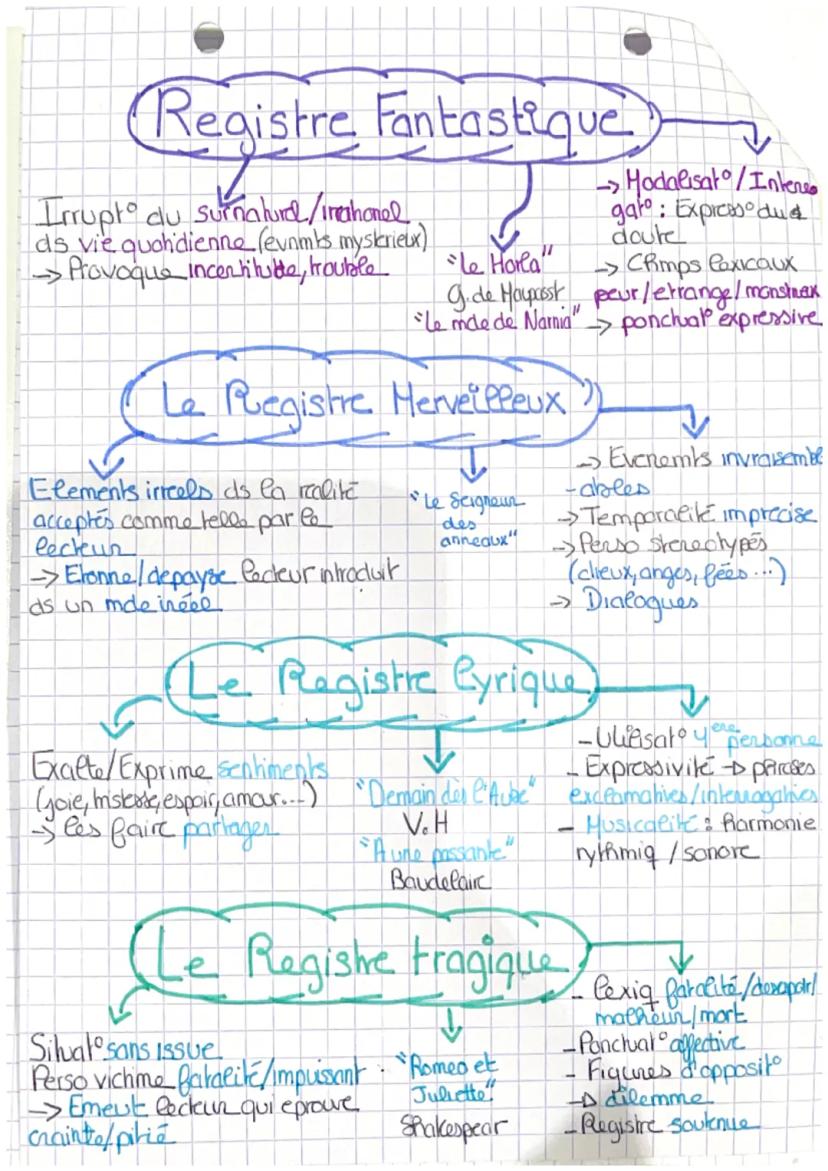 Registre Fantastique
Irrupt° du surnaturel/irrationel
ds vie quotidienne (evnmts mysterieux)
-> Provoque incertitutde, trouble
"Le Horla"
G. de Maupasst
"Le mde de Narnia"
-> Modalisat°/Interro
gat° : Express° du
doute
-> Chmps lexicaux
peur/etrange/monstrueux
-> ponctuat° expressive
Le Registre Merveilleux
Elements irreels ds la realité
acceptés comme telle par le
lecteur
-> Etonne/depayse lecteur introduit
ds un mde inéel
"Le Seigneur
des
anneaux"
-> Evenemts invraisembl
-ables
-> Temporalité imprecise
-> Perso stereotypés
(dieux, anges, fées ...)
-> Dialogues
Le Registre lyrique
Exalte/Exprime sentiments
(joie, tristesse, espoir, amour...)
-> les faire partager
"Demain dès l'Aube"
V.H
"A une passante"
Baudelaire
- Utilisat° 1ere personne
- Expressivité -> phrases
exclamatives/interrogatives
- Musicalité : harmonie
rythmiq / sonore
Le Registre tragique
Situat° sans issue
Perso victime fatalité/impuissant.
-> Emeut lecteur qui eprouve
crainte/pitié
"Romeo et
Juliette"
Shakespear
- lexiq fatalité/desespoir/
malheur/mort
- Ponctuat° affective
- Figures d'opposit°
-> dilemme
- Registre soutenue